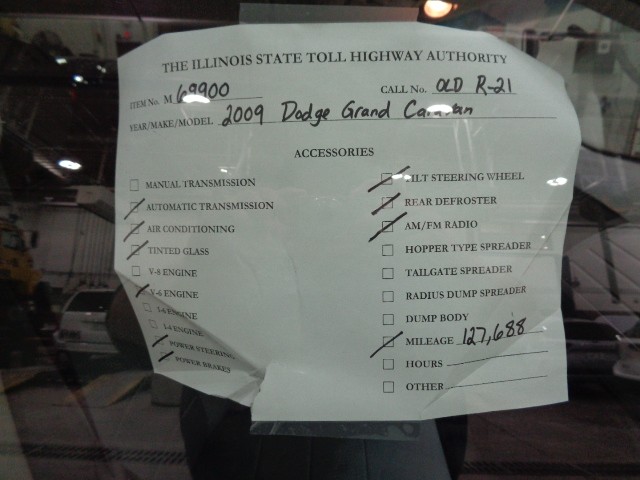 THE ILLINOIS STATE TOLL HIGHWAY AUTHORITY
ITEM No. M 69900 CALL No. OLD R-21
YEAR/MAKE/MODEL 2009 Dodge Grand Caravan
ACCESSORIES
MANUAL TRANSMISSION
AUTOMATIC TRANSMISSION
AIR CONDITIONING
TINTED GLASS
V-8 ENGINE
V-6 ENGINE
I-6 ENGINE
I-4 ENGINE
POWER STEERING
POWER BRAKES
TILT STEERING WHEEL
REAR DEFROSTER
AM/FM RADIO
HOPPER TYPE SPREADER
TAILGATE SPREADER
RADIUS DUMP SPREADER
DUMP BODY
MILEAGE 127,688
HOURS
OTHER